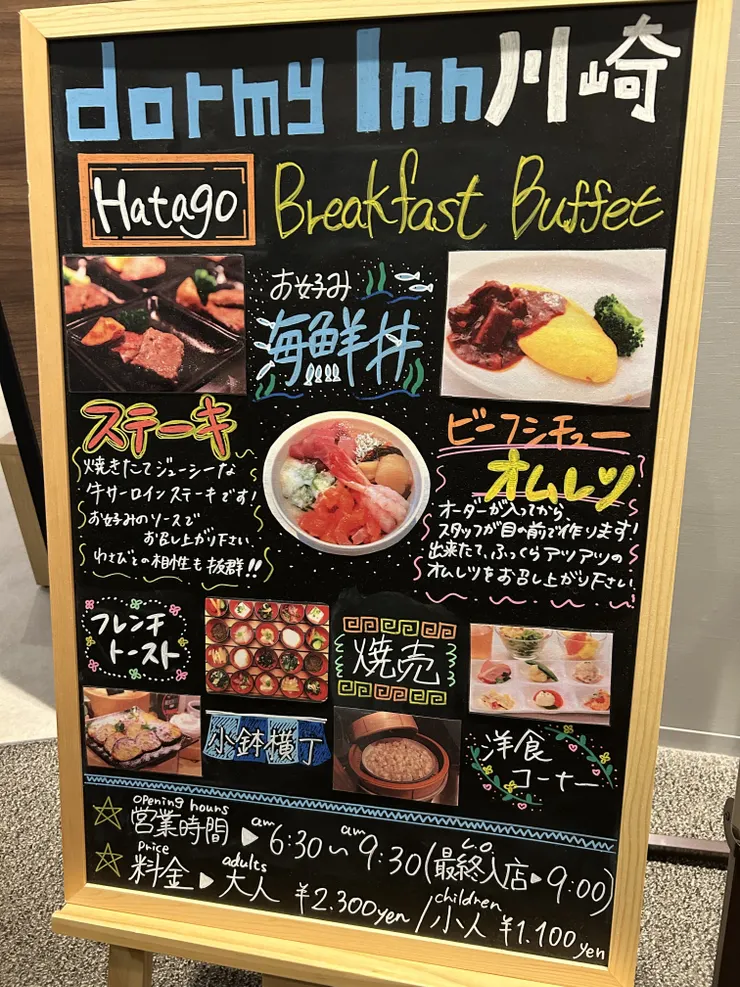 dormy Inn川崎
Hatago
Breakfast Buffet
お好み
海鮮丼
ステーキ
焼きたてジューシーな
牛サーロインステーキです!
お好みのソースで
お召し上がり下さい
わさびとの相性も抜群!!
ビーフシチュー
オムレツ
オーダーが入ってから
スタッフが目の前で作ります!
出来たて、ふっくらアツアツの
オムレツをお召し上がり下さい
フレンチ
トースト
焼売
小鉢横丁
洋食
コーナー
opening hours
営業時間▶am6:30~am9:30(最終入店▶9:00)
L.O.
Price
料金▶大人 ¥2.300yen/小人 ¥1.100yen
adults
children